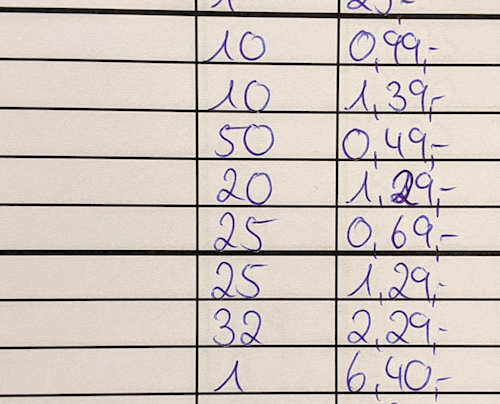 1 25,-
10 0,99,-
10 1,39,-
50 0,49,-
20 1,29,-
25 0,69,-
25 1,29,-
32 2,29,-
1 6,40,-